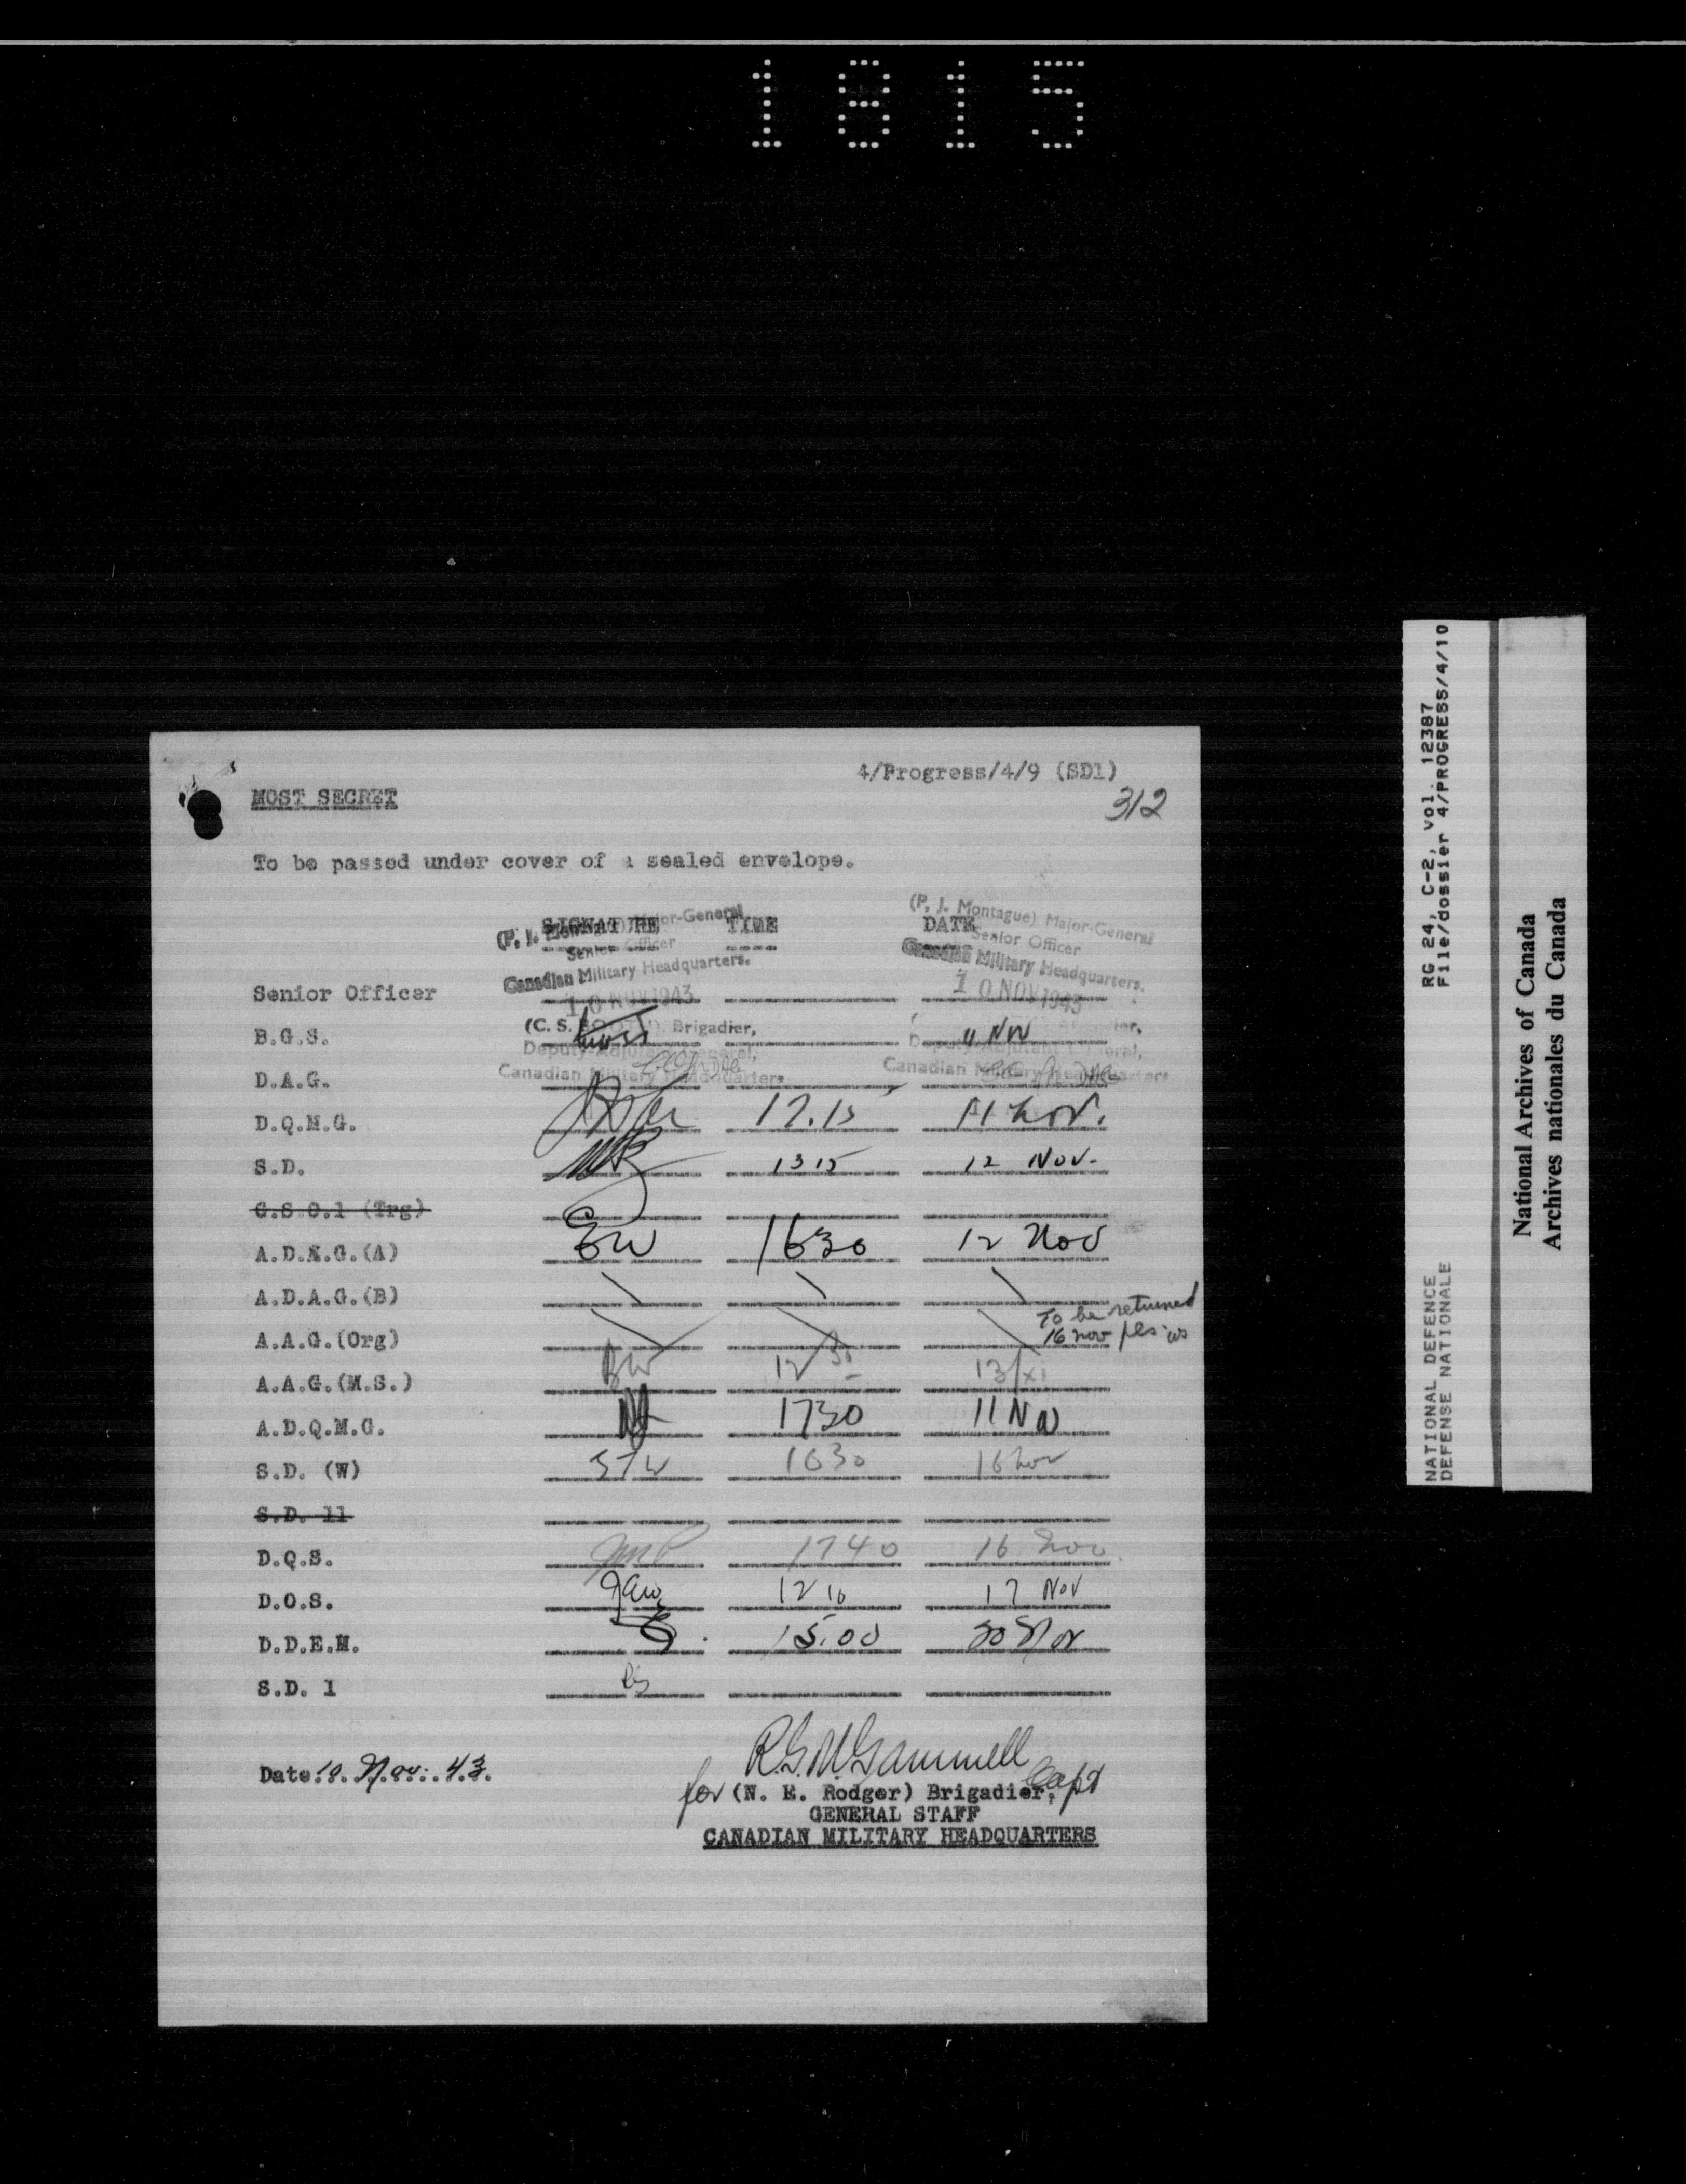 1815
4/Progress/4/9 (SD1)
MOST SECRET
312
To be passed under cover of a sealed envelope.
SIGNATURE TIME DATE
(P. J. Major-General
Senior Officer
Canadian Military Headquarters.
(P. J. Montague) Major-General
Senior Officer
Canadian Military Headquarters.
Senior Officer 10 NOV 1943 10 NOV 1943
(C. S. BOOTH) Brigadier,
Deputy-Adjutant General,
Canadian Military Headquarters
B.G.S. 11 Nov
Deputy-Adjutant General,
Canadian Military Headquarters
D.A.G.
D.Q.M.G. 17.15 11 Nov.
S.D. 1315 12 Nov.
G.S.O.1 (Trg)
A.D.A.G.(A) EW 1630 12 Nov
A.D.A.G.(B)
To be returned
16 nov pls
A.A.G.(Org)
A.A.G.(M.S.) 12 30 13/xi
A.D.Q.M.G. 1730 11 Nov
S.D. (W) STW 1630 16 Nov
S.D. 11
D.Q.S. 1740 16 Nov.
D.O.S. 12 10 17 Nov
D.D.E.M. 15.00 30 Nov
S.D. 1
Date 10. Nov. 43.
Capt
for (N. E. Rodger) Brigadier,
GENERAL STAFF
CANADIAN MILITARY HEADQUARTERS
RG 24, C-2, vol. 12387
File/dossier 4/PROGRESS/4/10
NATIONAL DEFENCE
DEFENSE NATIONALE
National Archives of Canada
Archives nationales du Canada